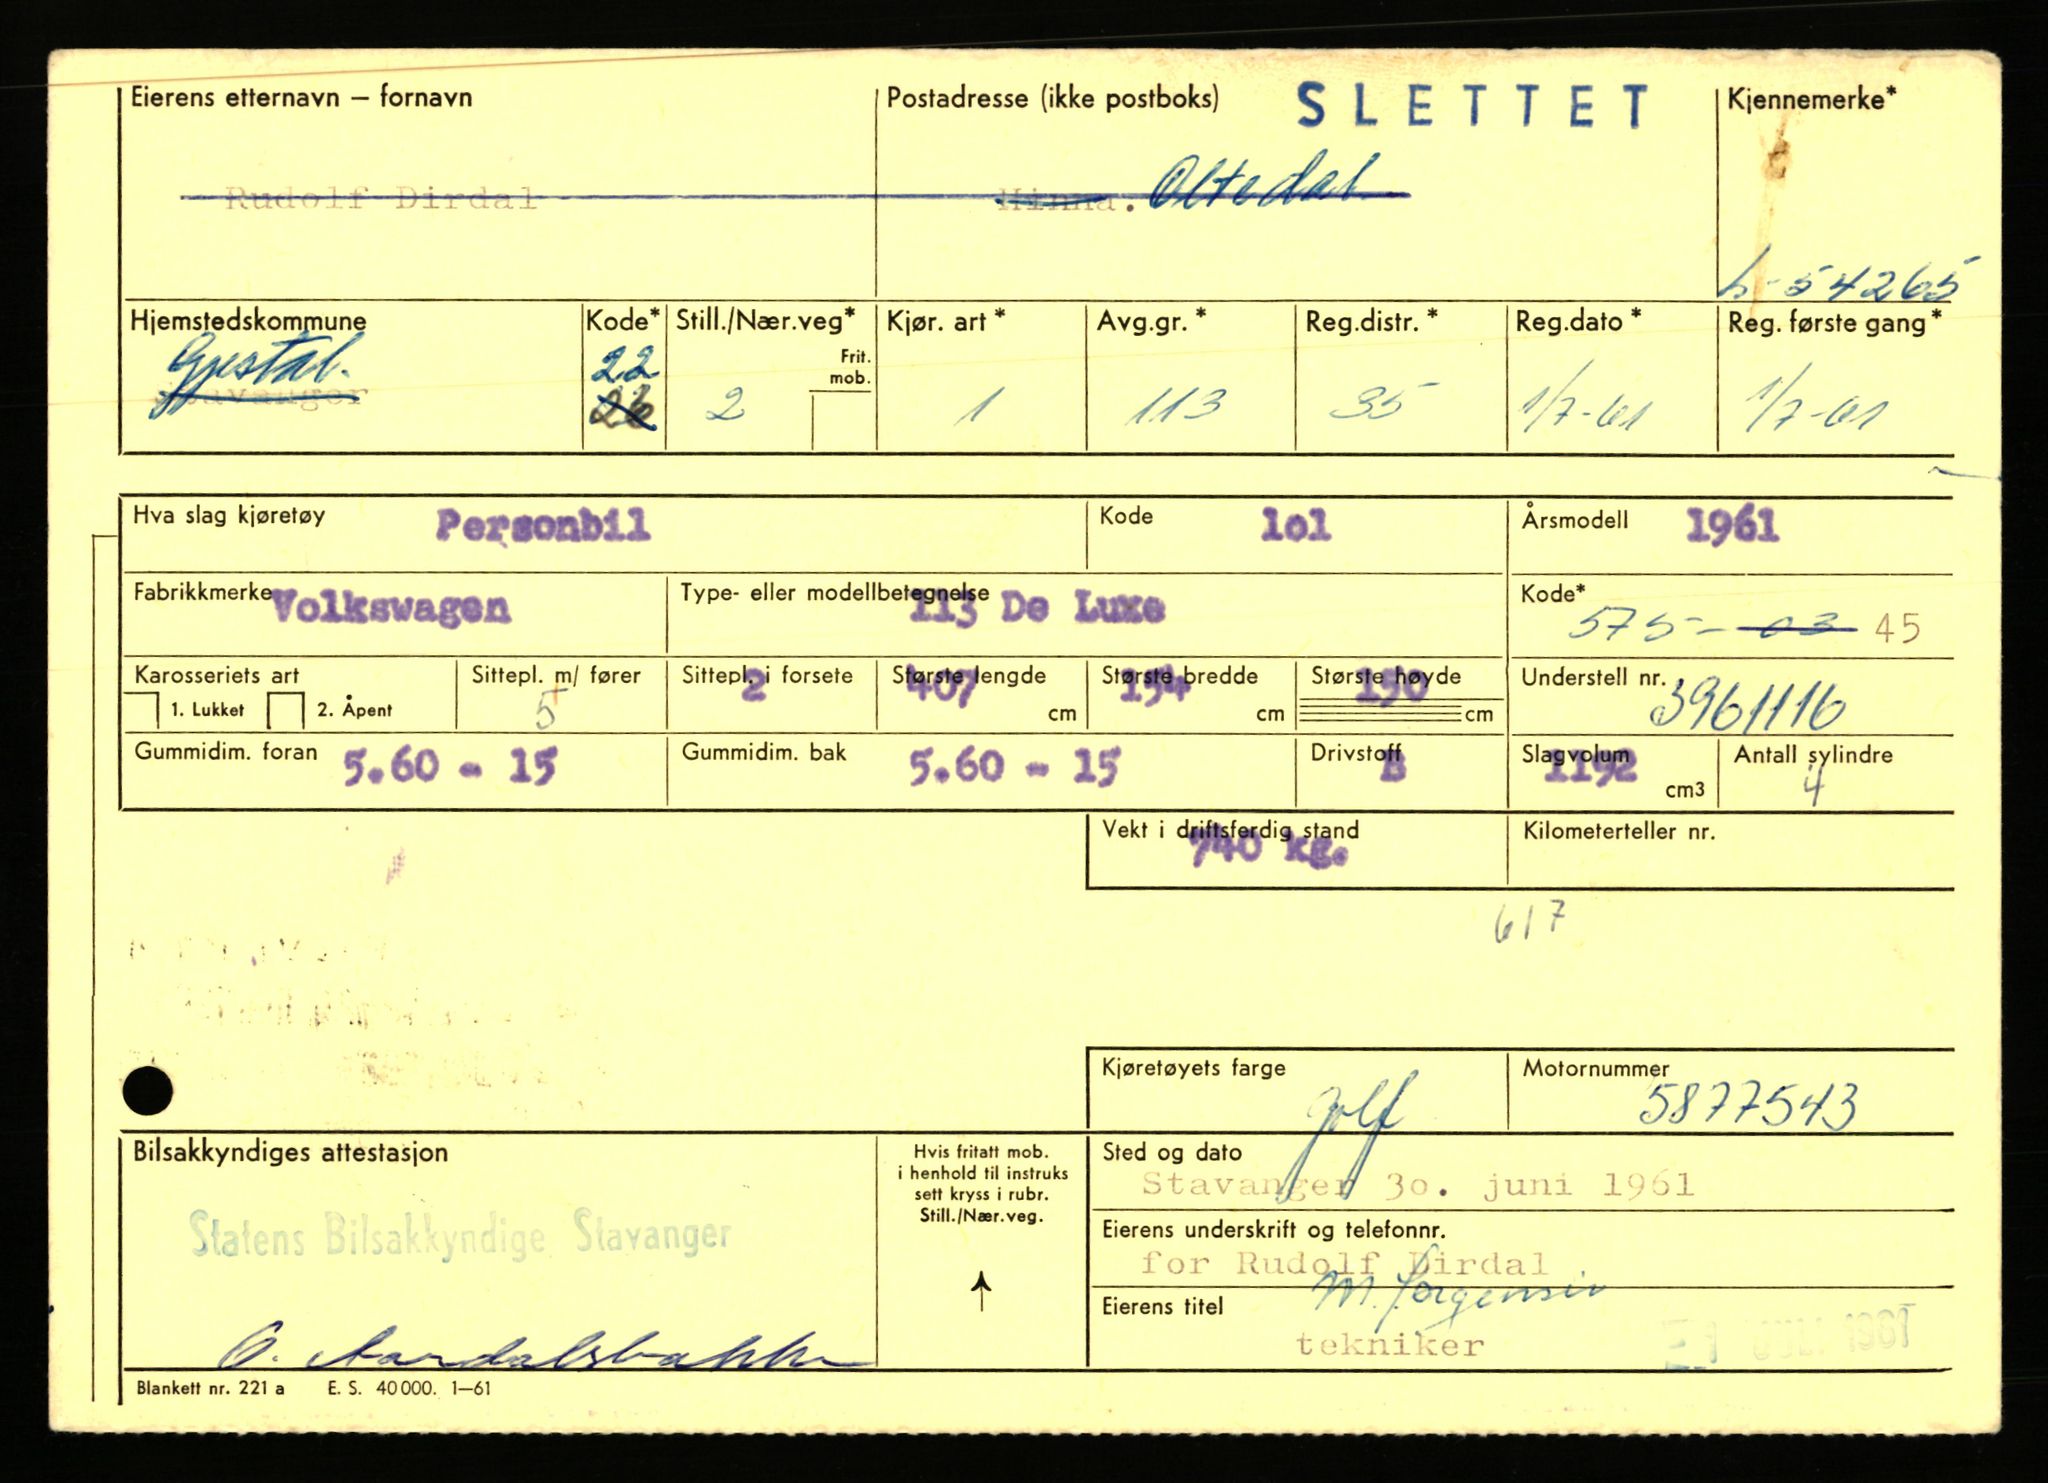 Eierens etternavn – fornavn Postadresse (ikke postboks) SLETTET Kjennemerke*
Rudolf Dirdal Hinna. Oltedal
L-54265
Hjemstedskommune Kode* Still./Nær.veg* Kjør. art* Avg.gr.* Reg.distr.* Reg.dato* Reg. første gang*
Gjestal. 22 Frit. mob.
Stavanger 26 2 1 113 35 1/7-61 1/7-61
Hva slag kjøretøy Personbil Kode 1o1 Årsmodell 1961
Fabrikkmerke Volkswagen Type- eller modellbetegnelse 113 De Luxe Kode* 575-03 45
Karosseriets art Sittepl. m/ fører Sittepl. i forsete 2 Største lengde 407 Største bredde 154 Største høyde 150 Understell nr. 3961116
1. Lukket 2. Åpent 5 cm cm cm
Gummidim. foran 5.60 - 15 Gummidim. bak 5.60 - 15 Drivstoff B Slagvolum 1192 cm3 Antall sylindre 4
Vekt i driftsferdig stand 740 kg. Kilometerteller nr.
617
Kjøretøyets farge golf Motornummer 5877543
Bilsakkyndiges attestasjon
Statens Bilsakkyndige Stavanger
Hvis fritatt mob.
i henhold til instruks
sett kryss i rubr.
Still./Nær.veg.
Sted og dato
Stavanger 3o. juni 1961
Eierens underskrift og telefonnr.
for Rudolf Dirdal
M. Jørgensen
Eierens titel
tekniker
JULI 1961
Blankett nr. 221 a E. S. 40 000. 1–61